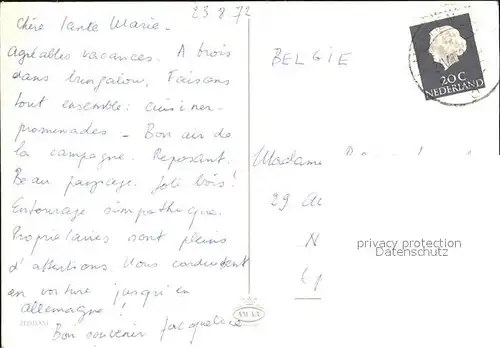 23 8 72
Chère tante Marie -
Agréables vacances. A trois
dans bungalow. Faisons
tout ensemble: cuisiner -
promenades - Bon air de
la campagne. Reposant.
Beau paysage. Joli bois!
Entourage sympathique.
Propriétaires sont pleins
d'attentions. Nous conduisent
en voiture jusqu'en
allemagne!
Bon souvenir Jacqueline
BELGIE
20C
NEDERLAND
Madame
29
N
privacy protection
Datenschutz